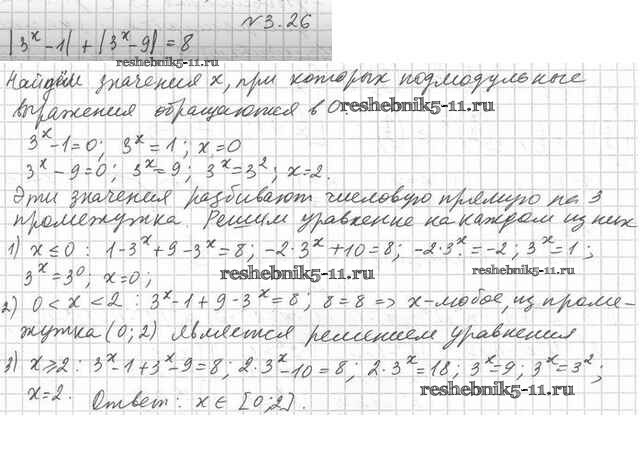 №3.26
|3^x-1|+|3^x-9|=8
reshebnik5-11.ru
Найдём значения x, при которых подмодульные
выражения обращаются в 0.
reshebnik5-11.ru
3^x-1=0; 3^x=1; x=0
3^x-9=0; 3^x=9; 3^x=3^2; x=2.
Эти значения разбивают числовую прямую на 3
промежутка. Решим уравнение на каждом из них
1) x≤0: 1-3^x+9-3^x=8; -2·3^x+10=8; -2·3^x=-2; 3^x=1;
3^x=3^0; x=0;
reshebnik5-11.ru
reshebnik5-11.ru
2) 0<x<2: 3^x-1+9-3^x=8; 8=8 => x-любое, из проме-
жутка (0;2) является решением уравнения
3) x≥2: 3^x-1+3^x-9=8; 2·3^x-10=8; 2·3^x=18; 3^x=9; 3^x=3^2;
x=2. Ответ: x∈[0;2].
reshebnik5-11.ru